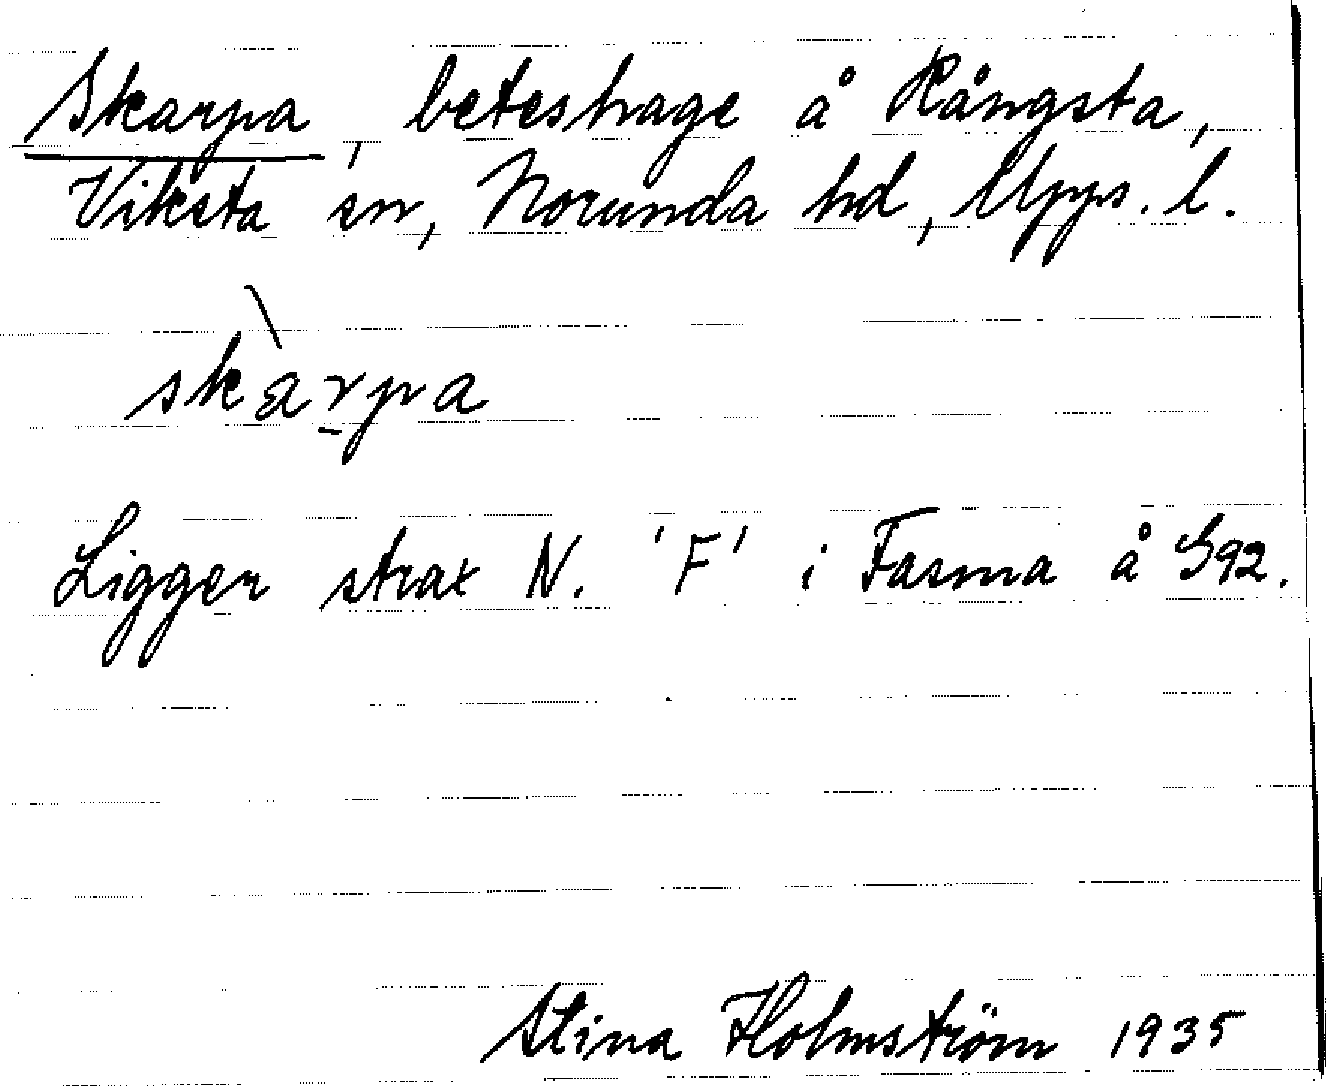 Skarpa, beteshage å Rångsta,
Viksta sn, Norunda hd, Upps. l.
skàr̠pa
Ligger strax N. 'F' i Fasma å G92.
Stina Holmström 1935